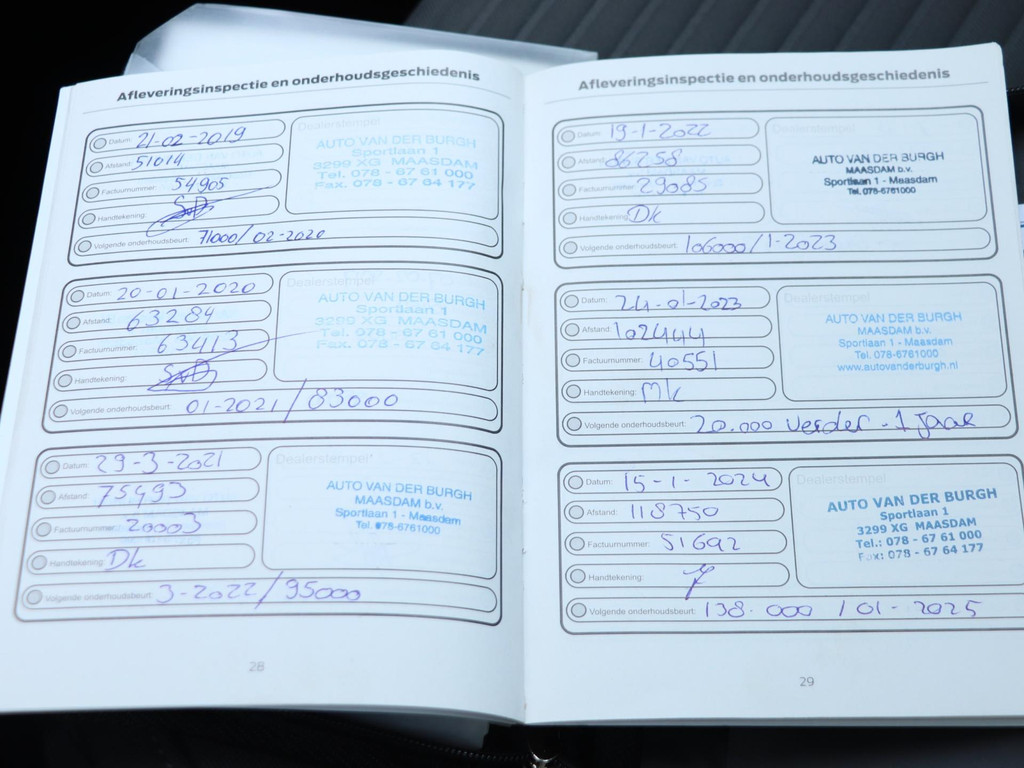 Afleveringsinspectie en onderhoudsgeschiedenis
Datum: 21-02-2019
Afstand: 51014
Factuurnummer: 54905
Handtekening:
Volgende onderhoudsbeurt: 71000/02-2020
Dealerstempel
AUTO VAN DER BURGH
Sportlaan 1
3299 XG MAASDAM
Tel. 078 - 67 61 000
Fax. 078 - 67 64 177
Datum: 20-01-2020
Afstand: 63284
Factuurnummer: 63413
Handtekening:
Volgende onderhoudsbeurt: 01-2021/83000
Dealerstempel
AUTO VAN DER BURGH
Sportlaan 1
3299 XG MAASDAM
Tel. 078 - 67 61 000
Fax. 078 - 67 64 177
Datum: 29-3-2021
Afstand: 75493
Factuurnummer: 20003
Handtekening: Dk
Volgende onderhoudsbeurt: 3-2022/95000
Dealerstempel*
AUTO VAN DER BURGH
MAASDAM b.v.
Sportlaan 1 - Maasdam
Tel. 078-6761000
28
Afleveringsinspectie en onderhoudsgeschiedenis
Datum: 19-1-2022
Afstand: 86258
Factuurnummer: 29085
Handtekening: Dk
Volgende onderhoudsbeurt: 106000/1-2023
Dealerstempel
AUTO VAN DER BURGH
MAASDAM b.v.
Sportlaan 1 - Maasdam
Tel. 078-6761000
Datum: 24-01-2023
Afstand: 102444
Factuurnummer: 40551
Handtekening: Mk
Volgende onderhoudsbeurt: 20.000 verder - 1 jaar
Dealerstempel
AUTO VAN DER BURGH
MAASDAM b.v.
Sportlaan 1 - Maasdam
Tel. 078-6761000
www.autovanderburgh.nl
Datum: 15-1-2024
Afstand: 118750
Factuurnummer: 51692
Handtekening:
Volgende onderhoudsbeurt: 138.000 / 01-2025
Dealerstempel
AUTO VAN DER BURGH
Sportlaan 1
3299 XG MAASDAM
Tel.: 078 - 67 61 000
Fax: 078 - 67 64 177
29